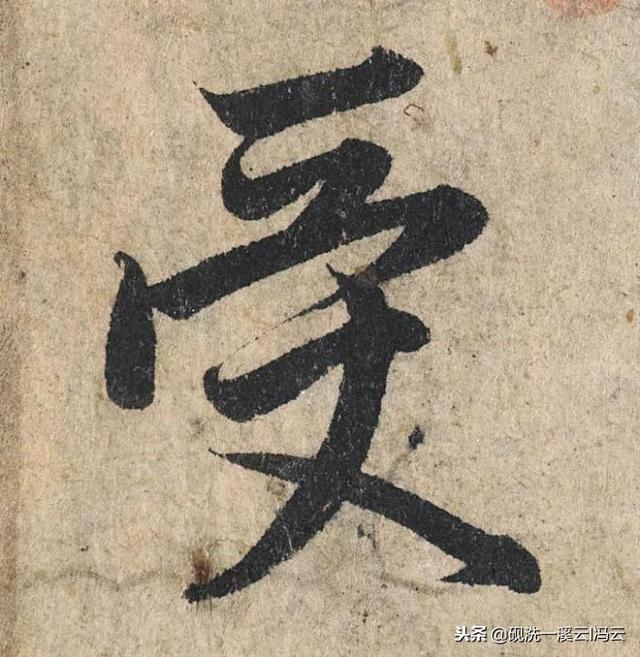 受
头条 @砚洗一溪云I冯云